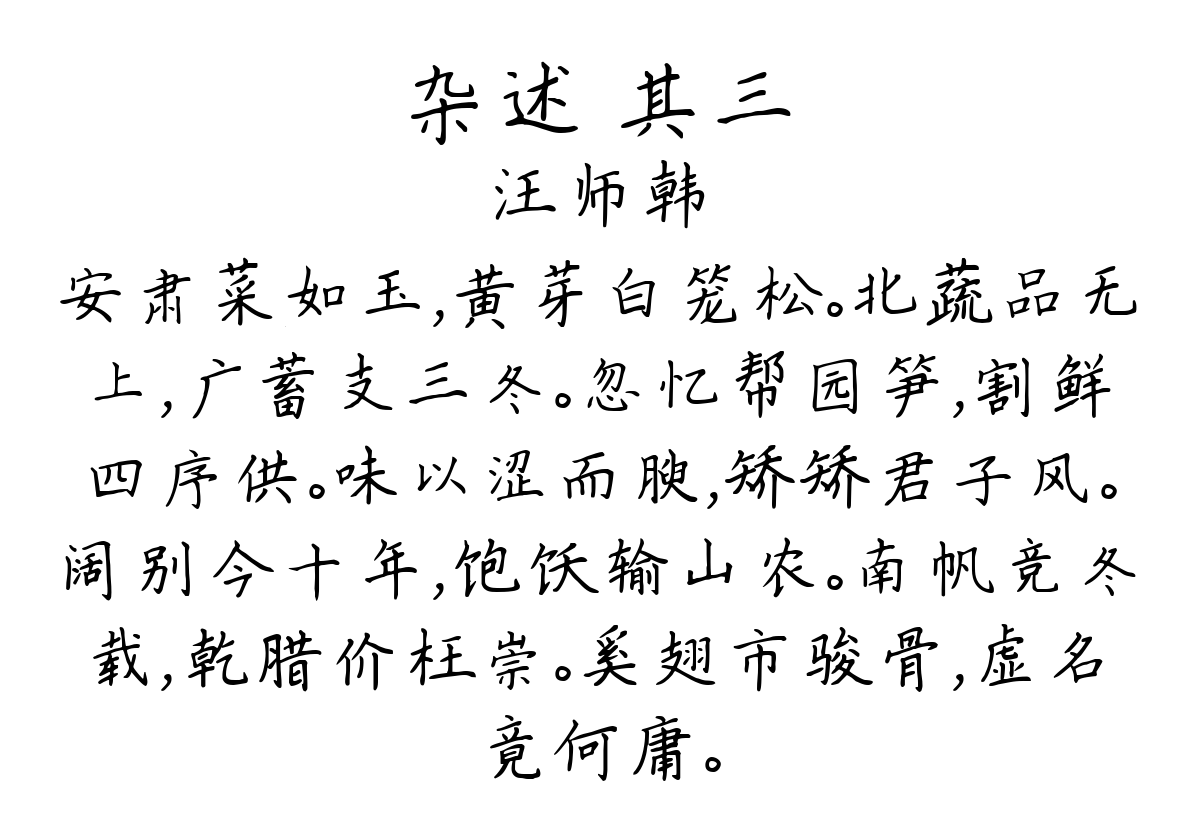 杂述 其三
汪师韩
安肃菜如玉,黄芽白笼松。北蔬品无
上,广蓄支三冬。忽忆帮园笋,割鲜
四序供。味以涩而腴,矫矫君子风。
阔别今十年,饱饫输山农。南帆竞冬
载,乾腊价枉崇。奚翅市骏骨,虚名
竟何庸。